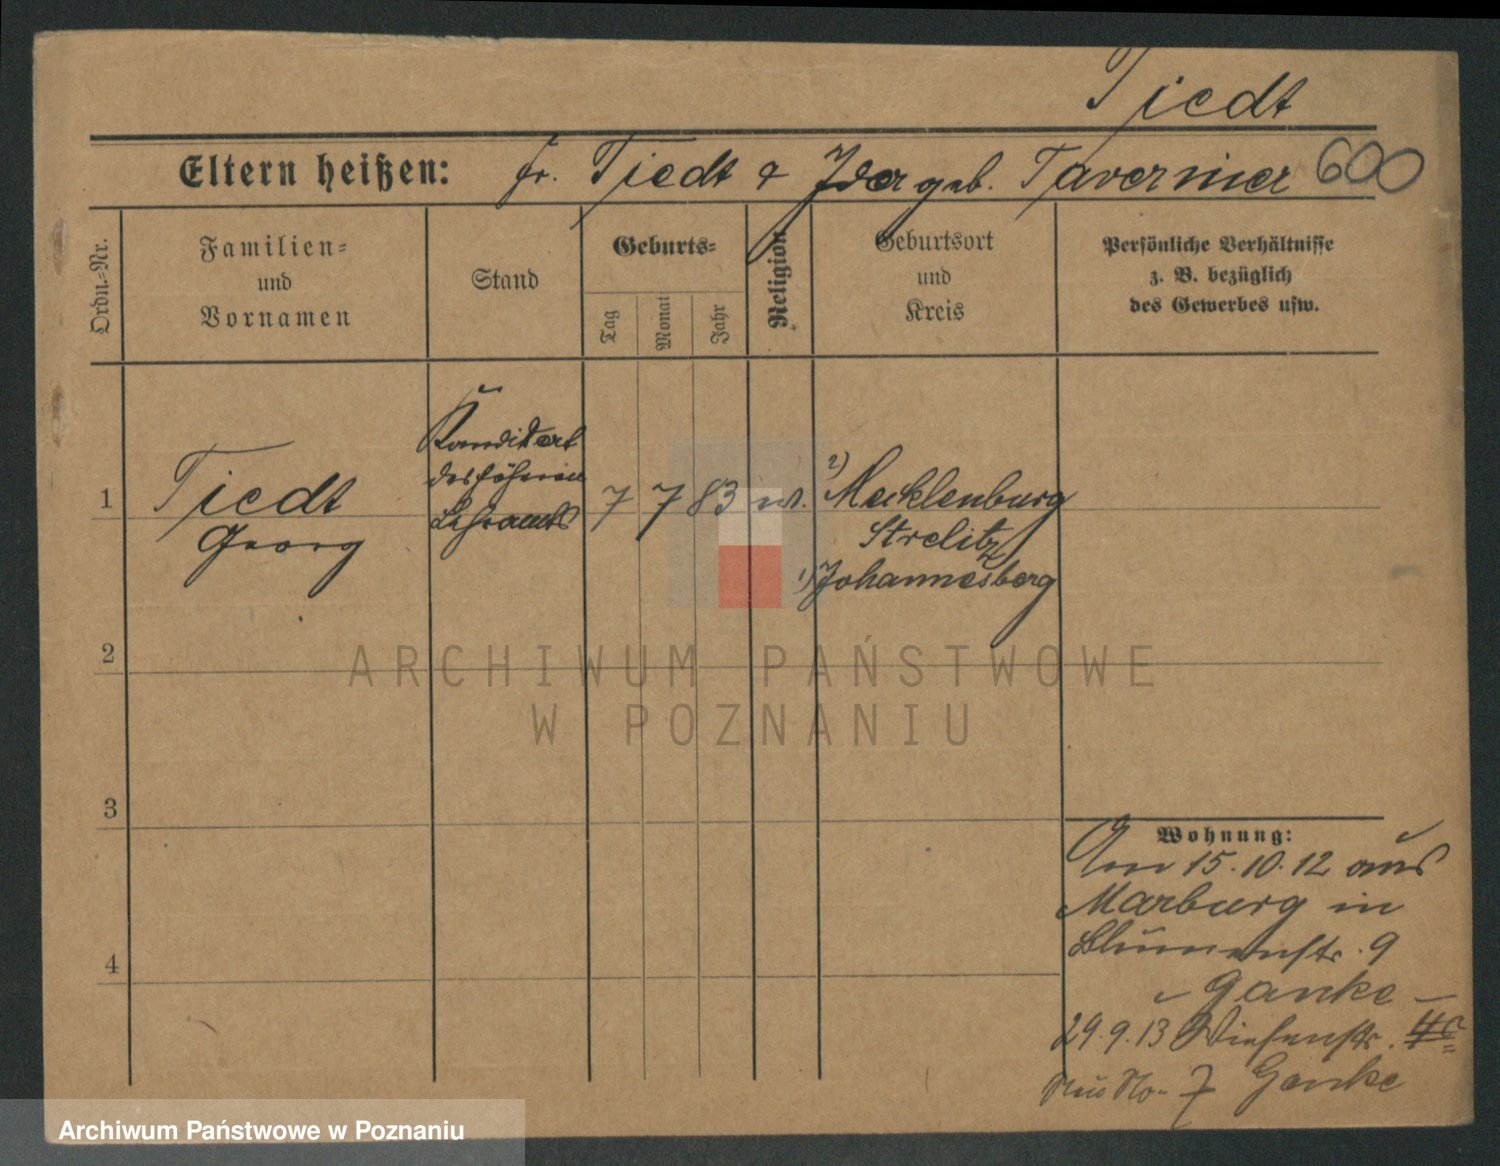 Tiedt
Eltern heißen: Fr. Tiedt & Ida geb. Tavernier 600
Ordn.-Nr.
Familien-
und
Vornamen
Stand
Geburts-
Tag
Monat
Jahr
Religion
Geburtsort
und
Kreis
Persönliche Verhältnisse
z. B. bezüglich
des Gewerbes usw.
1
Tiedt
Georg
Kandidat
des höheren
Lehramts
7 7 83
2) Mecklenburg
Strelitz
1) Johannesberg
2
3
4
Wohnung:
Am 15.10.12 aus
Marburg in
Blumenstr. 9
- Ganke -
29.9.13 Wiesenstr.
Neu No. 7 Ganke
ARCHIWUM PAŃSTWOWE
W POZNANIU
Archiwum Państwowe w Poznaniu